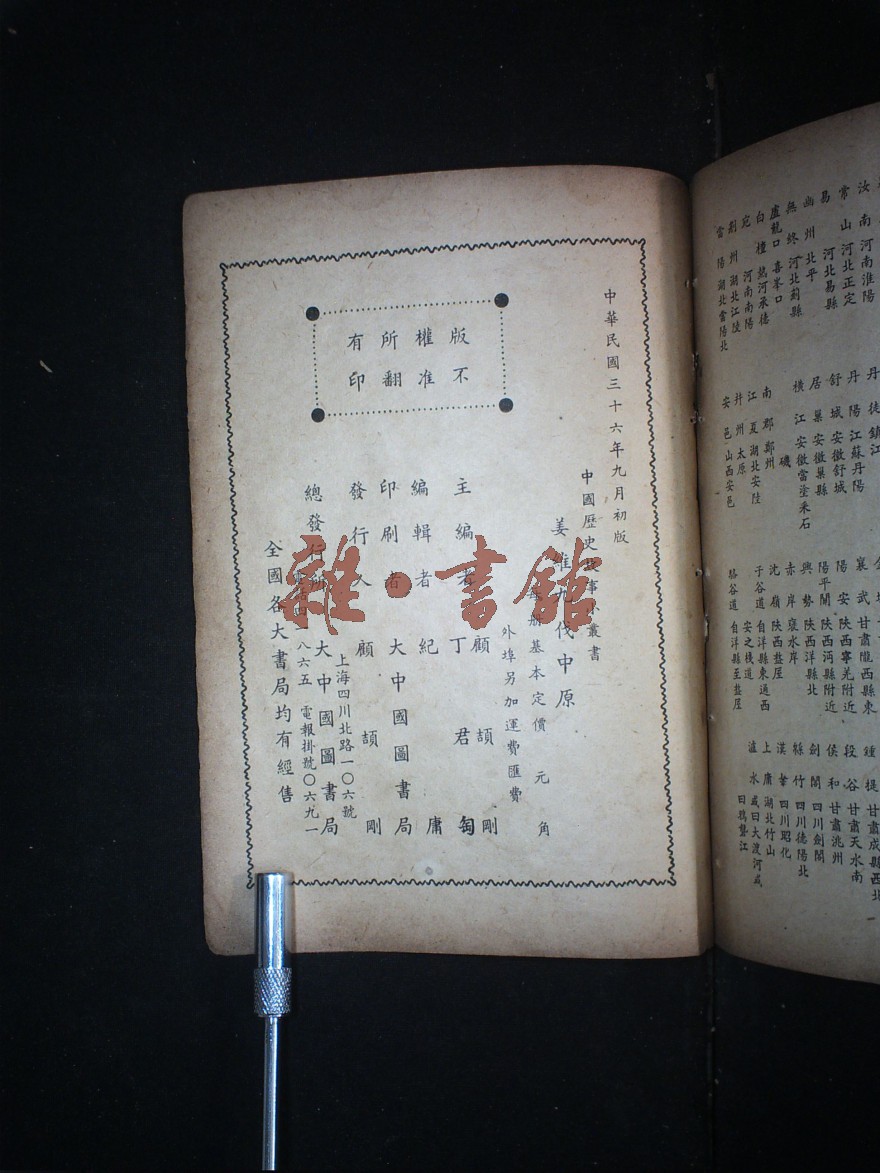 汝 南 河南淮陽
常 山 河北正定
易 河北易縣
幽 州 北平
無 終 河北薊縣
盧龍口 喜峯口
白 檀 熱河承德
宛 河南南陽
荆 州 湖北江陵
當 陽 湖北當陽北
丹 徒 鎮江
丹 陽 江蘇丹陽
舒 城 安徽舒城
居 巢 安徽巢縣
橫 江 安徽當塗釆石
磯
南 鄭 鄭州
江 夏 湖北安陸
幷 州 太原
安 邑 山西安邑
襄 武 甘肅隴西縣東
陽 安 陝西寧羌附近
陽平關 陝西沔縣附近
興 勢 陝西洋縣北
赤 岸 襃水岸
沈 嶺 陝西盩厔
子谷道 自洋縣東通西
安之棧道
駱谷道 自洋縣至盩厔
鍾 提 甘肅成縣西北
段 谷 甘肅天水南
侯 和 甘肅洮州
劍 閣 四川劍閣
緜 竹 四川德陽北
漢 夀 四川昭化
上 庸 湖北竹山
瀘 水 或曰大渡河或
曰鴉礱江
中華民國三十六年九月初版
中國歷史故事小叢書
姜維九伐中原
每册基本定價 元 角
外埠另加運費匯費
主編者 顧頡剛
丁君匋
編輯者 紀庸
印刷者 大中國圖書局
發行人 顧頡剛
上海四川北路一〇六號
總發行所 大中國圖書局
八六五 電報掛號〇六九一
全國各大書局均有經售
版權所有
不准翻印
雜·書館